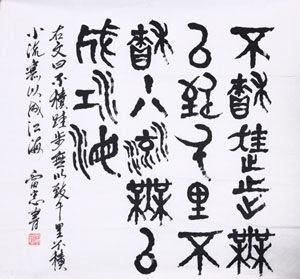 不積跬步無
以致千里不
積小流無以
成江海
右文曰不積跬步無以致千里不積
小流無以成江海 書